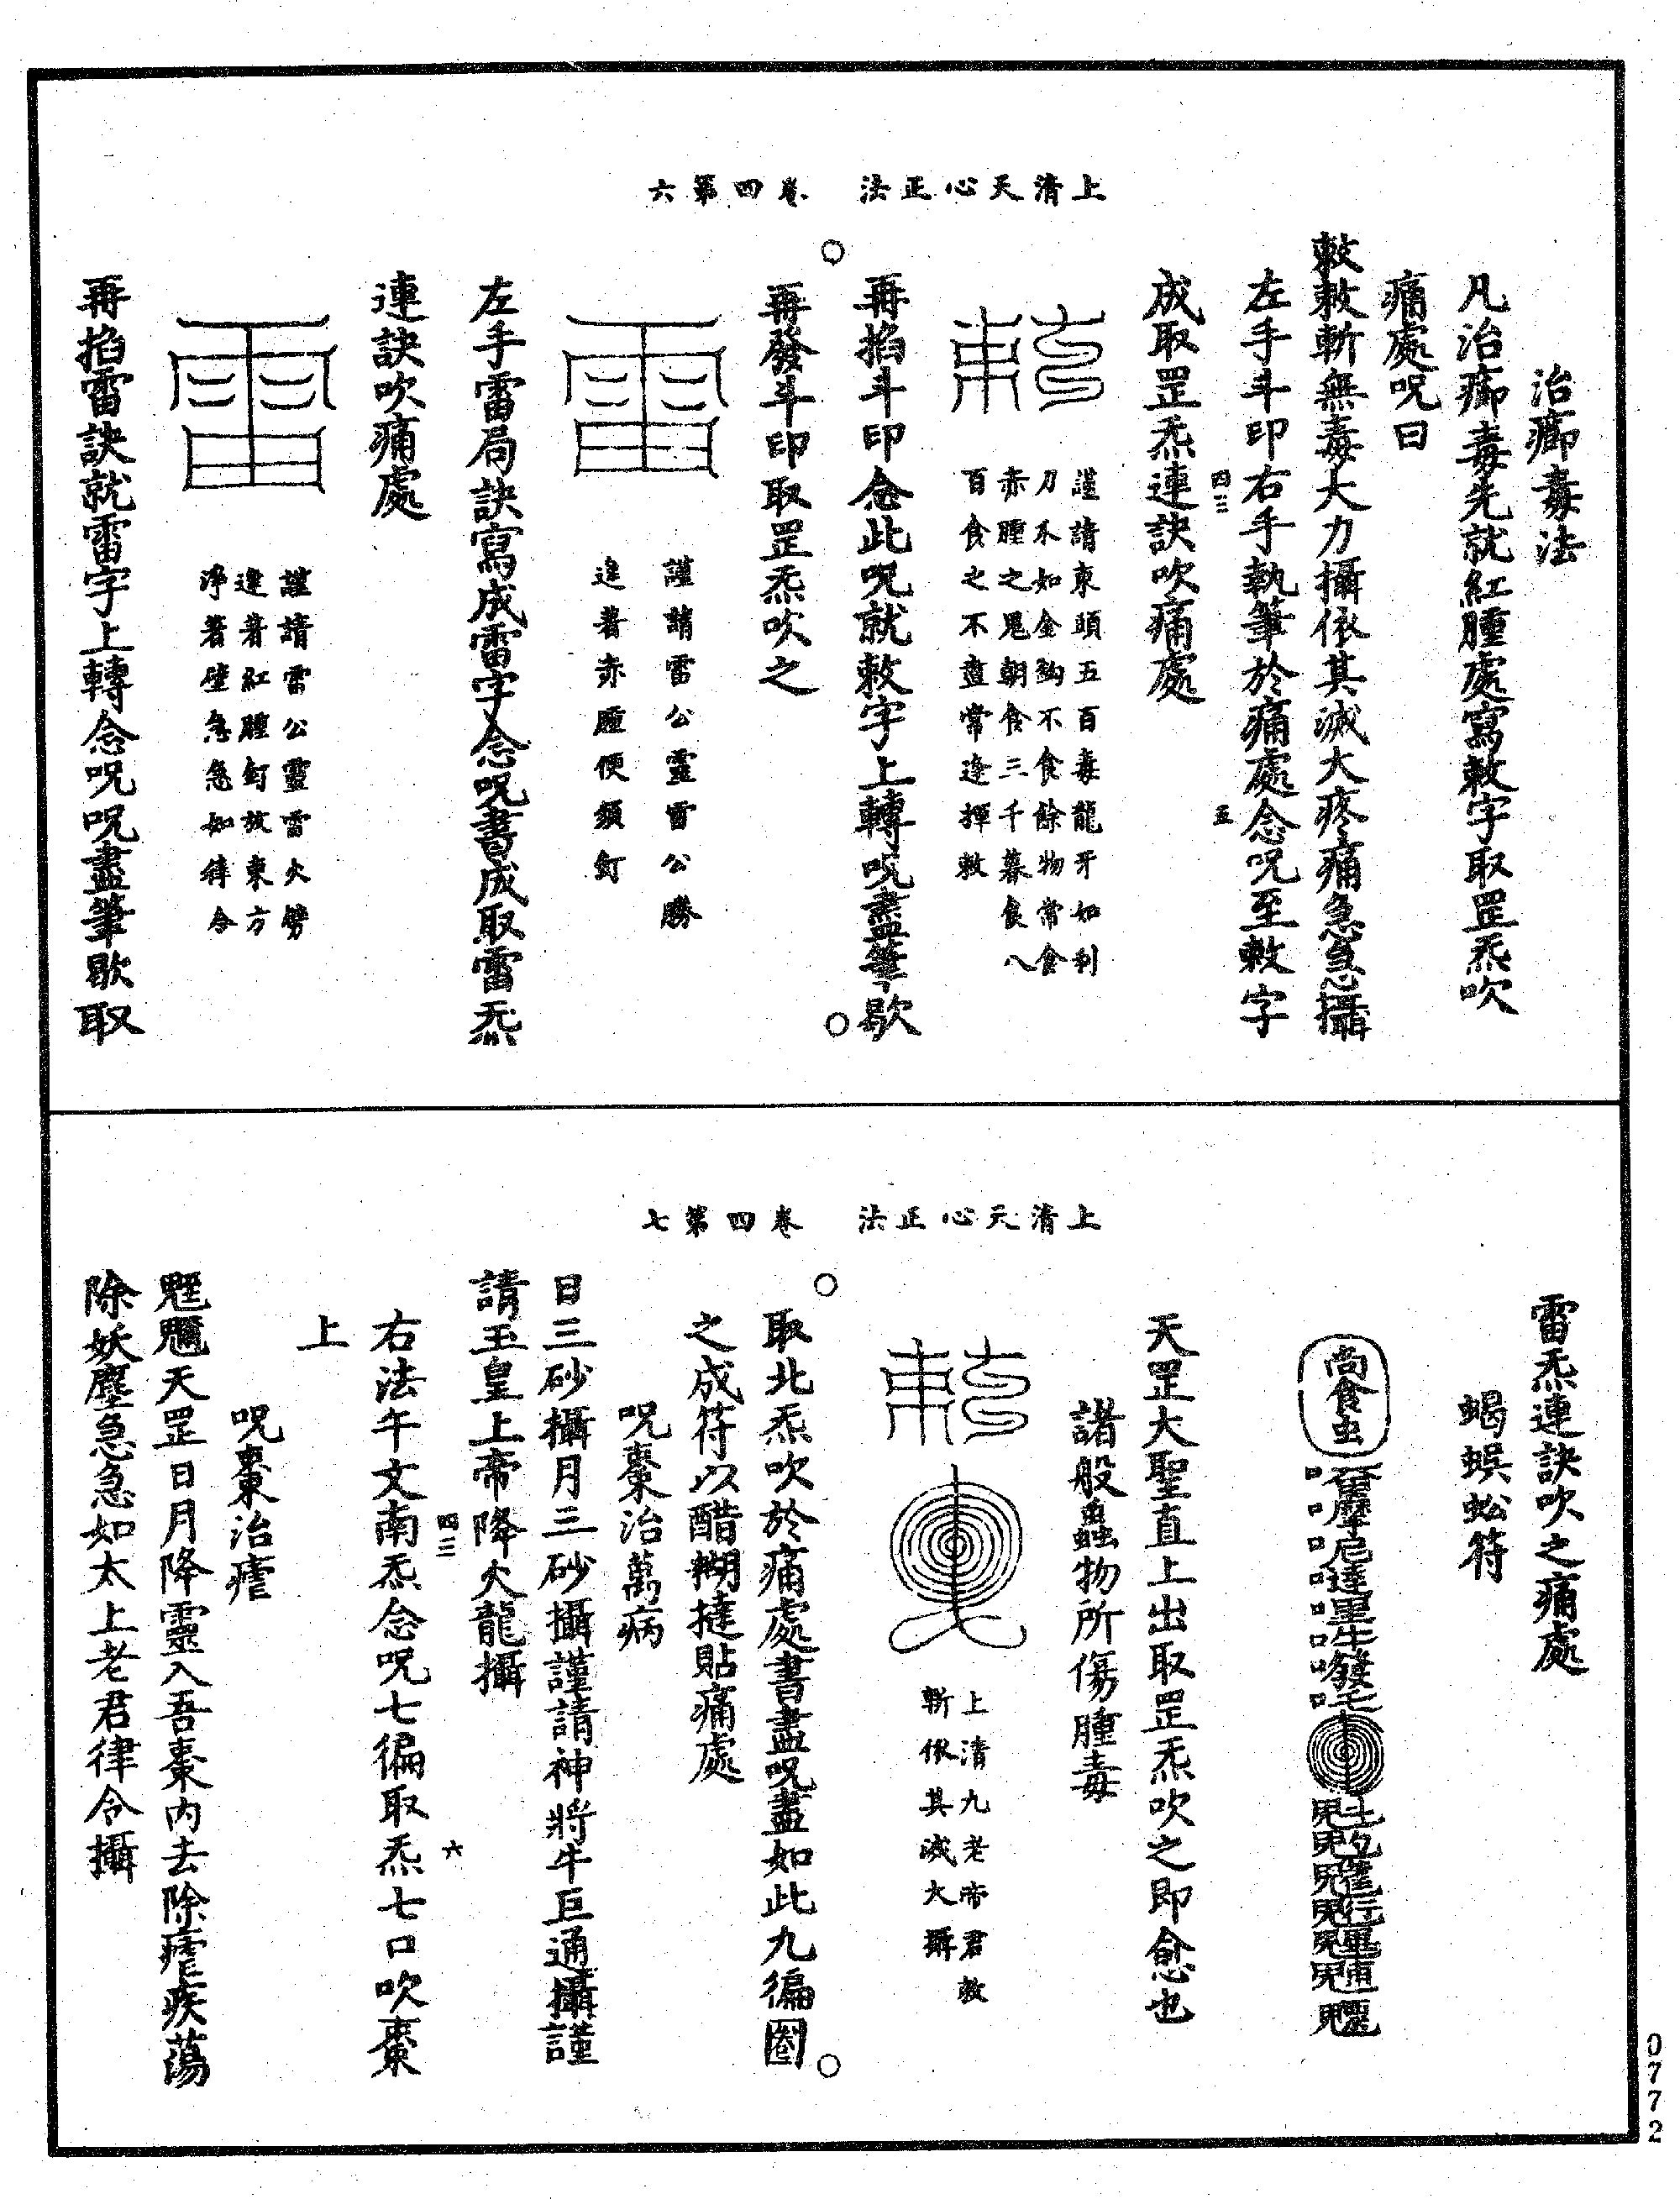 上清天心正法　卷四第六
治癤毒法
凡治癤毒先就紅腫處寫敕字取罡炁吹
痛處呪曰
敕敕斬無毒大力攝依其滅大疼痛急急攝
左手斗印右手執筆於痛處念呪至敕字
四三　五
成取罡炁連訣吹痛處
謹請東頭五百毒龍牙如利
刀不如金鈎不食餘物常食
赤腫之鬼朝食三千暮食八
百食之不盡常逢揮敕
再掐斗印念此呪就敕字上轉呪盡筆歇
再發斗印取罡炁吹之
謹請雷公靈雷公勝
逢著赤腫便須釘
左手雷局訣寫成雷字念呪書成取雷炁
連訣吹痛處
謹請雷公靈雷火劈
逢著紅腫釘放東方
淨著壁急急如律令
再掐雷訣就雷字上轉念呪呪盡筆歇取
上清天心正法　卷四第七
雷炁連訣吹之痛處
蝎蜈蚣符
尚食虫
天罡大聖直上出取罡炁吹之即愈也
諸般蟲物所傷腫毒
上清九老帝君敕
斬依其滅大攝
取北炁吹於痛處書盡呪盡如此九徧圈
之成符以醋糊撻貼痛處
呪棗治萬病
日三砂攝月三砂攝謹請神將牛巨通攝謹
請玉皇上帝降火龍攝
四三　六
右法午文南炁念呪七徧取炁七口吹棗
上
呪棗治瘧
天罡日月降靈入吾棗内去除瘧疾蕩
除妖塵急急如太上老君律令攝
0772